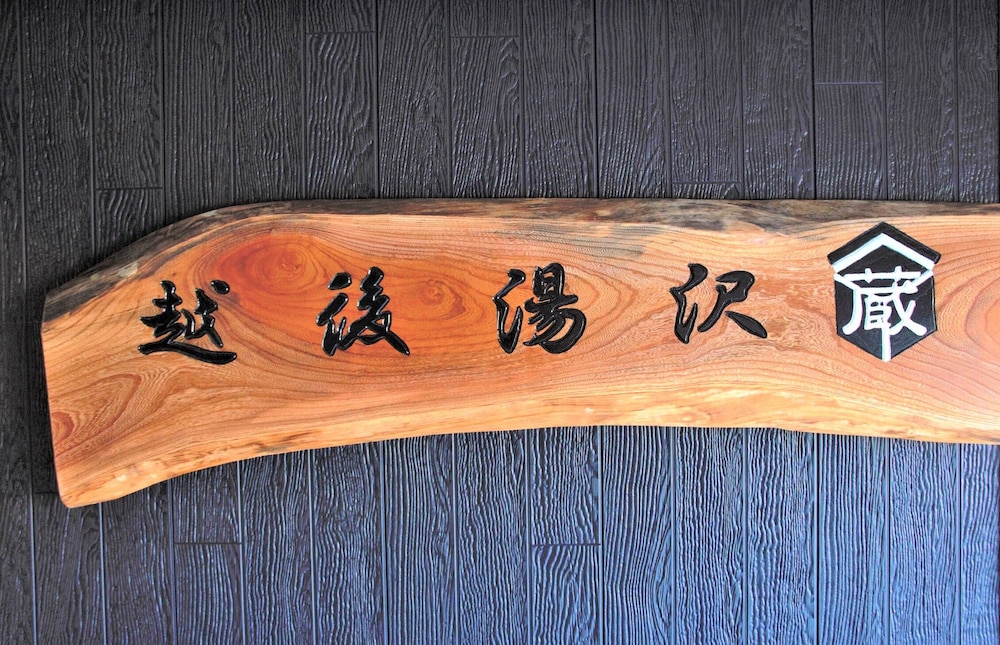 越後湯沢 蔵